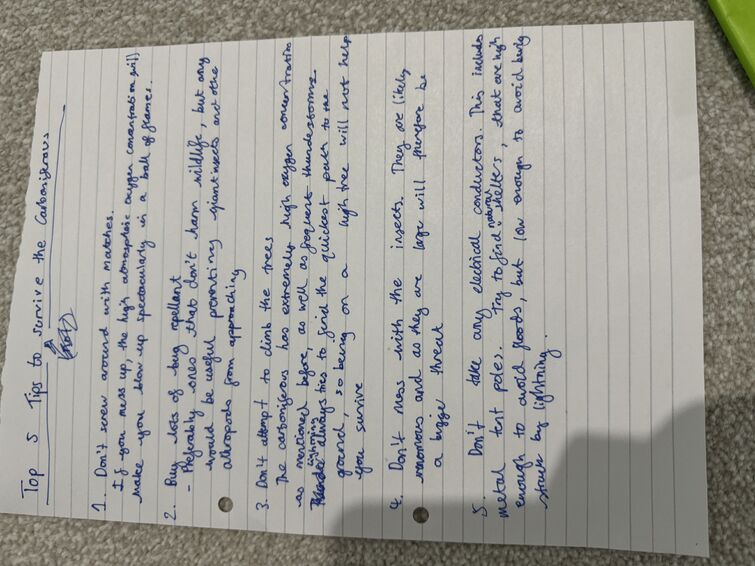 Top 5 Tips to survive the Carboniferous
1. Don't screw around with matches.
If you mess up, the high atmospheric oxygen concentration will
make you blow up spectacularly in a ball of flames.
2. Buy lots of bug repellant
- Preferably ones that don't harm wildlife, but any
would be useful preventing giant insects and other
arthropods from approaching
3. Don't attempt to climb the trees
The carboniferous has extremely high oxygen concentration
as mentioned before, as well as frequent thunderstorms.
Lightning always tries to find the quickest path to the
ground, so being on a high tree will not help
you survive
4. Don't mess with the insects. They are likely
venomous and as they are large will therefore be
a bigger threat
5. Don't take any electrical conductors. This includes
metal tent poles. Try to find natural shelters, that are high
enough to avoid floods, but low enough to avoid being
struck by lightning.